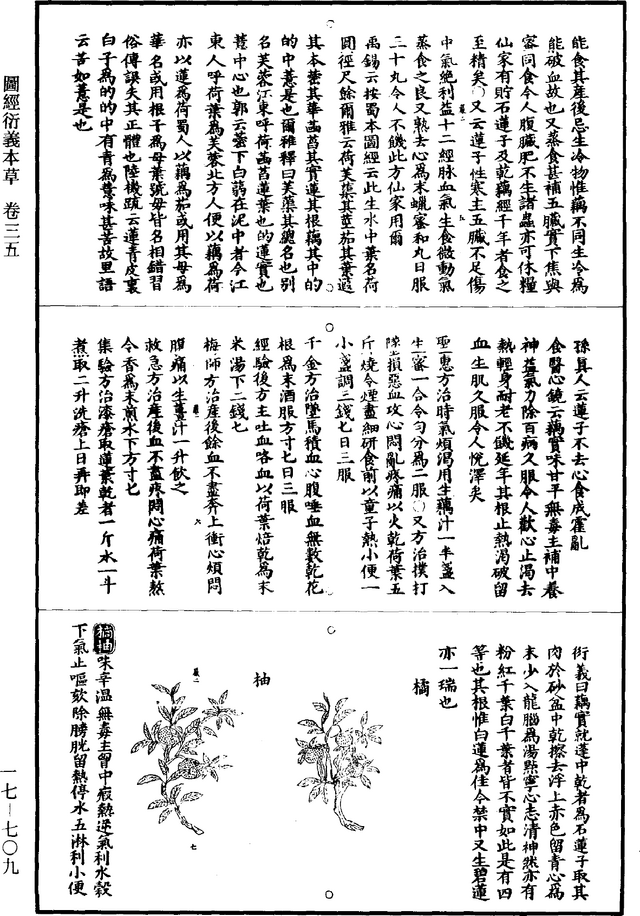 圖經衍義本草 卷三五
能食其產後忌生冷物惟藕不同生冷爲
能破血故也又蒸食甚補五臟實下焦與
蜜同食令人腹臟肥不生諸蟲亦可休糧
仙家有貯石蓮子及乾藕經千年者食之
至精矣○又云蓮子性寒主五臟不足傷
中氣絶利益十二經脉血氣生食微動氣
蒸食之良又熟去心爲末蠟蜜和丸日服
三十丸令人不饑此方仙家用爾
禹錫云按蜀本圖經云此生水中葉名荷
圓徑尺餘爾雅云荷芙蕖其莖茄其葉蕸
其本蔤其華菡萏其實蓮其根藕其中的
的中薏是也爾雅釋曰芙蕖其總名也别
名芙蓉江東呼荷菡萏蓮華也的蓮實也
薏中心也郭云蔤下白蒻在泥中者今江
東人呼荷華爲芙蓉北方人便以藕爲荷
亦以蓮爲荷蜀人以藕爲茄或用其母爲
華名或用根子爲母葉號皆名相錯習
俗傳誤失其正體也陸機疏云蓮青皮裏
白子爲的的中有青爲薏味甚苦故里語
云苦如薏是也
孫真人云蓮子不去心食成霍亂
食醫心鏡云藕實味甘平無毒主補中養
神益氣力除百病久服令人歡心止渴去
熱輕身耐老不饑延年其根止熱渴破留
血生肌久服令人悅澤矣
聖惠方治時氣煩渴用生藕汁一半盞入
生蜜一合令勻分爲二服○又方治撲打
墜損惡血攻心悶亂疼痛以火乾荷葉五
斤燒令煙盡細研食前以童子熱小便一
小盞調三錢七日三服
千金方治墜馬積血心腹唾血無數乾花
根爲末酒服方寸七日三服
經驗後方主吐血咯血以荷葉焙乾爲末
米湯下二錢七
梅師方治産後餘血不盡奔上衝心煩悶
腹痛以生藕汁二升飲之
救急方治産後血不盡疼悶心痛荷葉熬
令香爲末煎水下方寸七
集驗方治漆瘡取蓮葉乾者一斤水一斗
煮取二升洗瘡上日再即差
衍義曰藕實就蓬中乾者爲石蓮子取其
肉於砂盆中乾擦去浮上赤色留青心爲
末少入龍腦爲湯點寧心志清神然亦有
粉紅千葉白千葉者皆不實如此是有四
等也其根惟白蓮爲佳今禁中又生碧蓮
亦一瑞也
橘
柚
橘柚味辛溫無毒主胷中瘕熱逆氣利水穀
下氣止嘔欬除膀胱留熱停水五淋利小便
一七—七〇九